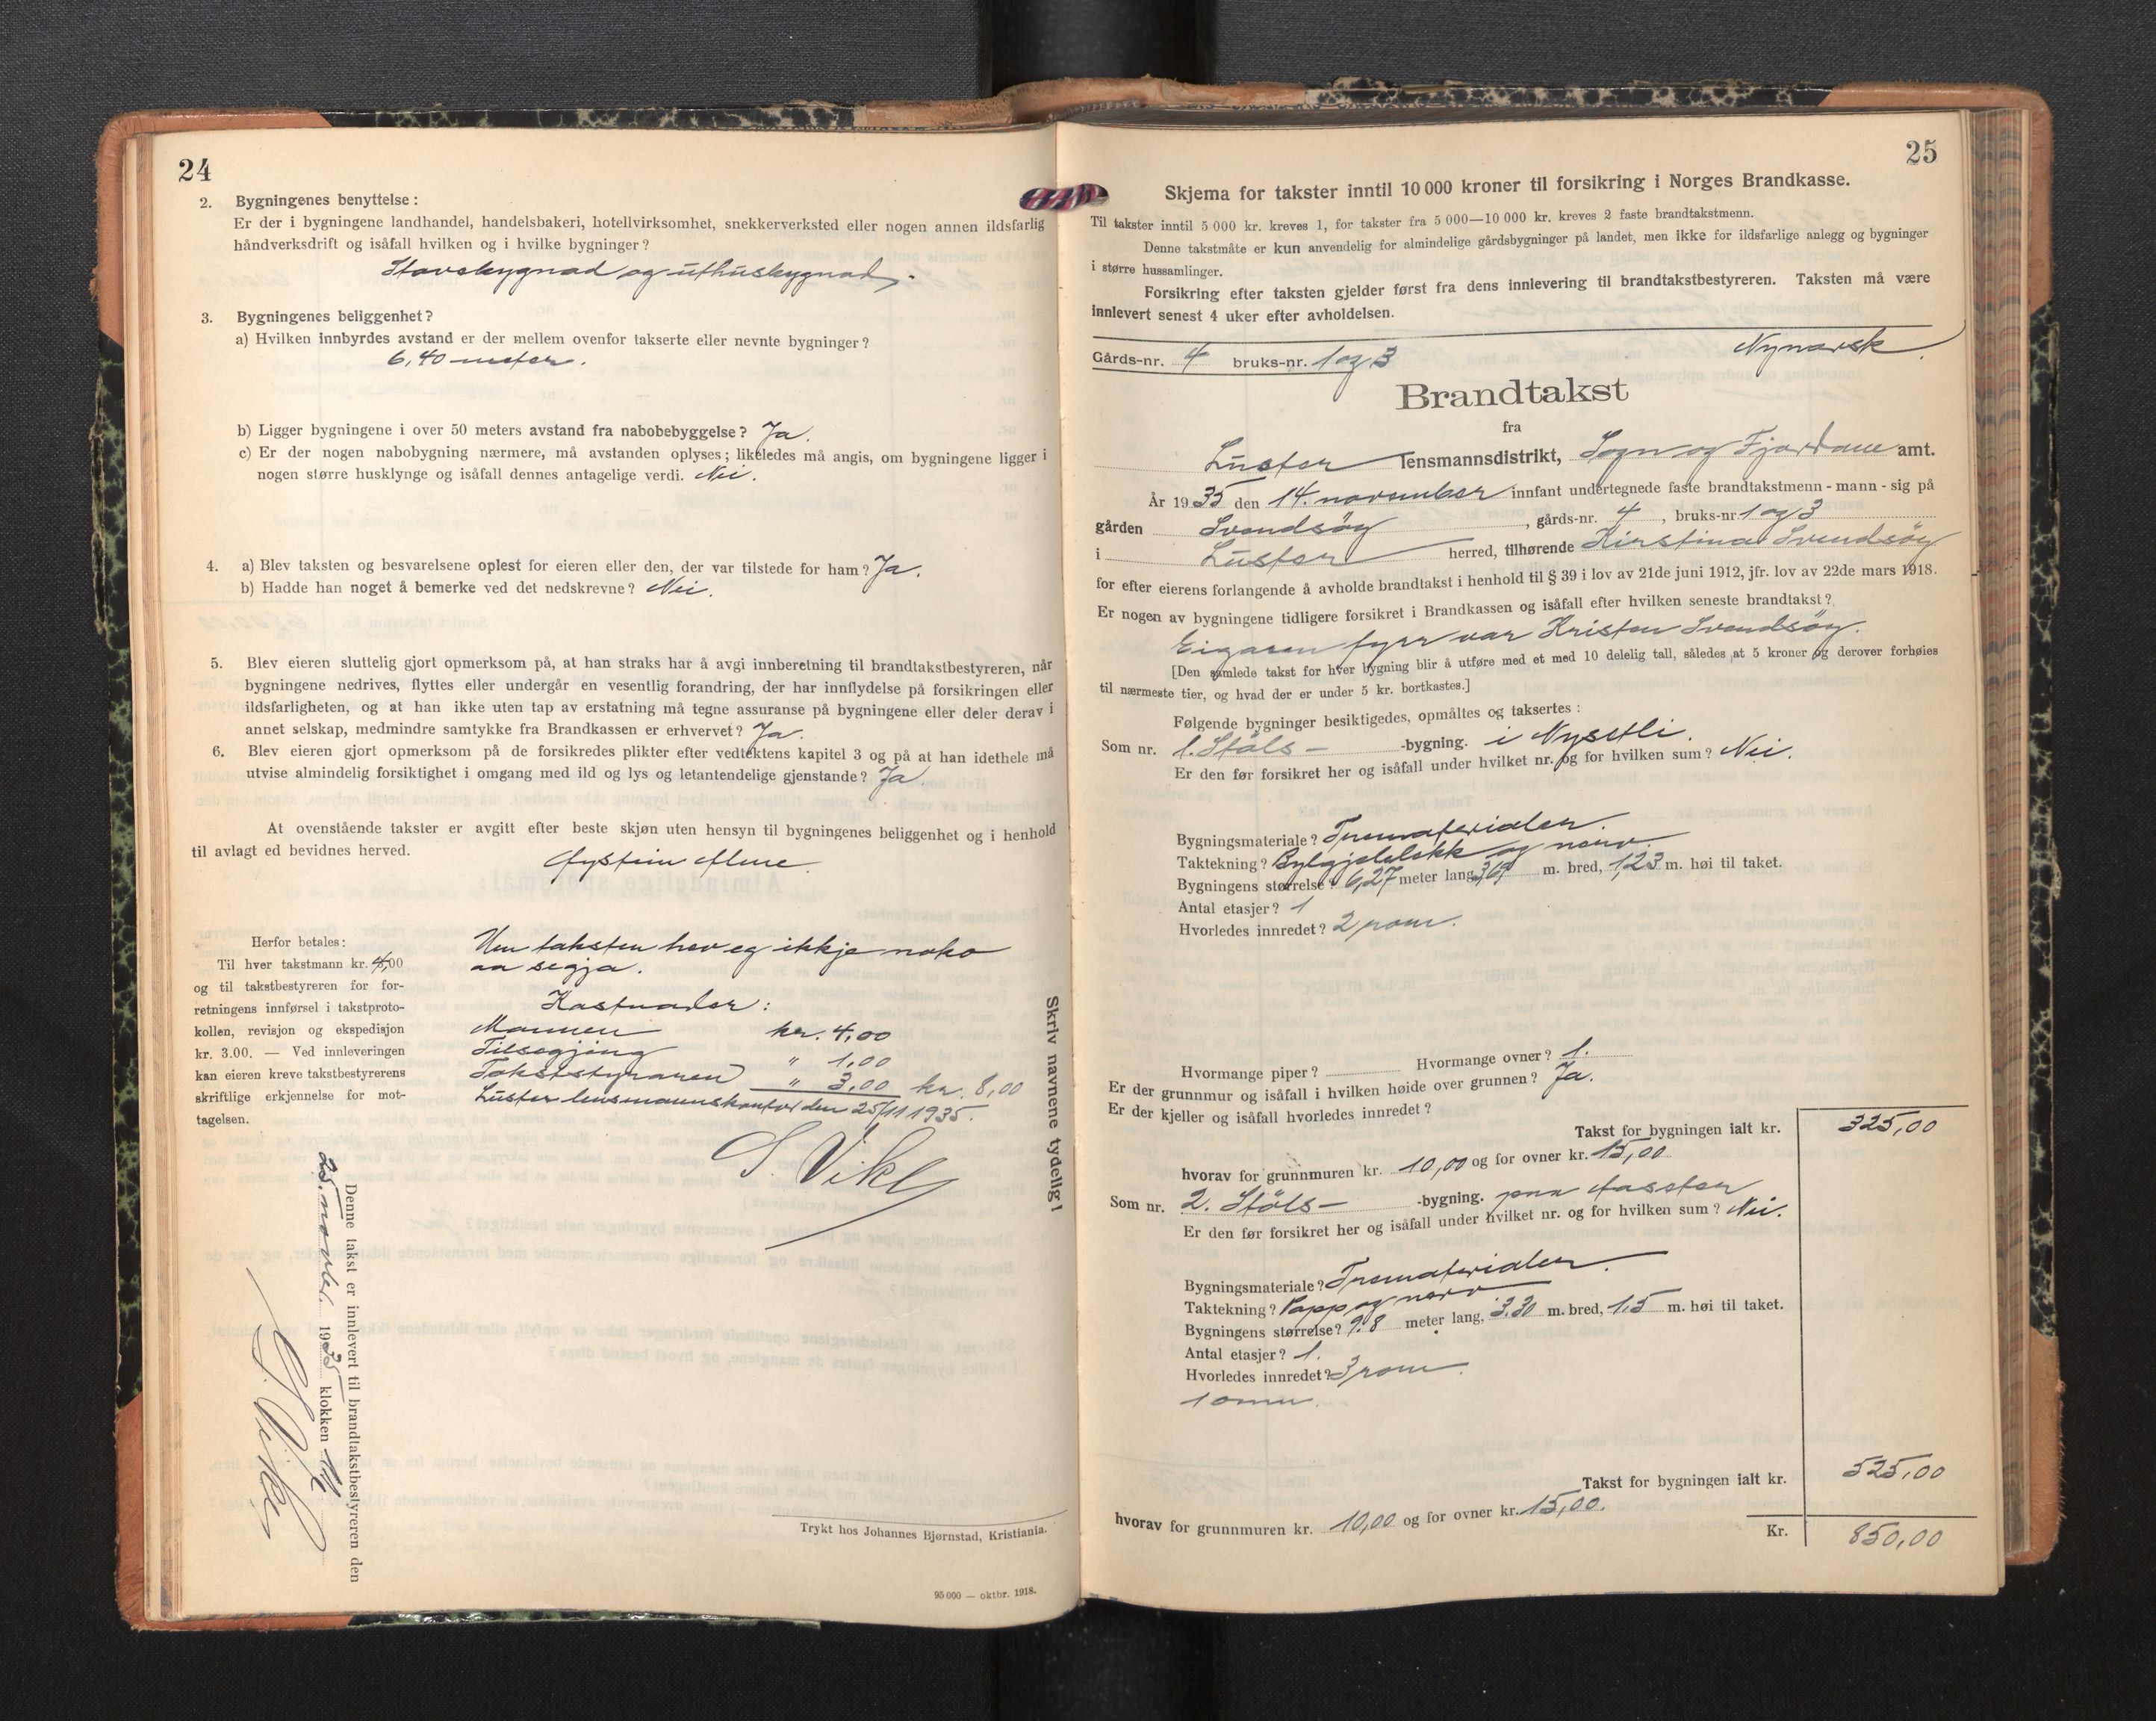 24
2. Bygningenes benyttelse:
Er der i bygningene landhandel, handelsbakeri, hotellvirksomhet, snekkerverksted eller nogen annen ildsfarlig
håndverksdrift og isåfall hvilken og i hvilke bygninger?
Stovebygnad og uthusbygnad.
3. Bygningenes beliggenhet?
a) Hvilken innbyrdes avstand er der mellem ovenfor takserte eller nevnte bygninger?
6,40 meter.
b) Ligger bygningene i over 50 meters avstand fra nabobebyggelse? Ja.
c) Er der nogen nabobygning nærmere, må avstanden oplyses; likeledes må angis, om bygningene ligger i
nogen større husklynge og isåfall dennes antagelige verdi. Nei.
4. a) Blev taksten og besvarelsene oplest for eieren eller den, der var tilstede for ham? Ja.
b) Hadde han noget å bemerke ved det nedskrevne? Nei.
5. Blev eieren sluttelig gjort opmerksom på, at han straks har å avgi innberetning til brandtakstbestyreren, når
bygningene nedrives, flyttes eller undergår en vesentlig forandring, der har innflydelse på forsikringen eller
ildsfarligheten, og at han ikke uten tap av erstatning må tegne assuranse på bygningene eller deler derav i
annet selskap, medmindre samtykke fra Brandkassen er erhvervet? Ja.
6. Blev eieren gjort opmerksom på de forsikredes plikter efter vedtektens kapitel 3 og på at han idethele må
utvise almindelig forsiktighet i omgang med ild og lys og letantendelige gjenstande? Ja
At ovenstående takster er avgitt efter beste skjøn uten hensyn til bygningenes beliggenhet og i henhold
til avlagt ed bevidnes herved.
Øystein
Herfor betales:
Til hver takstmann kr. 4,00
og til takstbestyreren for for-
retningens innførsel i takstproto-
kollen, revisjon og ekspedisjon
kr. 3.00. — Ved innleveringen
kan eieren kreve takstbestyrerens
skriftlige erkjennelse for mot-
tagelsen.
Um taksten hev eg ikkje noko
aa segja.
Kostnader:
Mannen kr. 4,00
Tilsegjing " 1,00
Takststyraren " 3,00 kr. 8,00
Luster lensmannskontor den 25/11 1935.
S. Vikl
Skriv navnene tydelig!
Denne takst er innlevert til brandtakstbestyreren den
25. novbr. 1935 klokken 12
S. Vikl
Trykt hos Johannes Bjørnstad, Kristiania.
95 000 — oktbr. 1918.
25
Skjema for takster inntil 10 000 kroner til forsikring i Norges Brandkasse.
Til takster inntil 5 000 kr. kreves 1, for takster fra 5 000—10 000 kr. kreves 2 faste brandtakstmenn.
Denne takstmåte er kun anvendelig for almindelige gårdsbygninger på landet, men ikke for ildsfarlige anlegg og bygninger
i større hussamlinger.
Forsikring efter taksten gjelder først fra dens innlevering til brandtakstbestyreren. Taksten må være
innlevert senest 4 uker efter avholdelsen.
Gårds-nr. 4 bruks-nr. 1 og 3 Nynorsk.
Brandtakst
fra
Luster lensmannsdistrikt, Sogn og Fjordane amt.
År 1935 den 14. november innfant undertegnede faste brandtakstmenn - mann - sig på
gården Svendsøy, gårds-nr. 4, bruks-nr 1 og 3
i Luster herred, tilhørende Kirstina Svendsøy
for efter eierens forlangende å avholde brandtakst i henhold til § 39 i lov av 21de juni 1912, jfr. lov av 22de mars 1918.
Er nogen av bygningene tidligere forsikret i Brandkassen og isåfall efter hvilken seneste brandtakst?
Eigaren fyrr var Kristen Svendsøy.
[Den samlede takst for hver bygning blir å utføre med et med 10 delelig tall, således at 5 kroner og derover forhøies
til nærmeste tier, og hvad der er under 5 kr. bortkastes.]
Følgende bygninger besiktigedes, opmåltes og taksertes:
Som nr. 1. Støls- -bygning. i Nysetli.
Er den før forsikret her og isåfall under hvilket nr. og for hvilken sum? Nei.
Bygningsmateriale? Trematerialer.
Taktekning? Bylgjeblekk og nevr.
Bygningens størrelse? 6,27 meter lang, 3,67 m. bred, 1,23 m. høi til taket.
Antal etasjer? 1
Hvorledes innredet? 2 rom.
Hvormange piper? Hvormange ovner? 1.
Er der grunnmur og isåfall i hvilken høide over grunnen? Ja.
Er der kjeller og isåfall hvorledes innredet?
Takst for bygningen ialt kr. 325,00
hvorav for grunnmuren kr. 10,00 og for ovner kr. 15,00
Som nr. 2. Støls- -bygning. paa
Er den før forsikret her og isåfall under hvilket nr. og for hvilken sum? Nei.
Bygningsmateriale? Trematerialer.
Taktekning? Papp og nevr
Bygningens størrelse? 9.8 meter lang, 3.30 m. bred, 1.5 m. høi til taket.
Antal etasjer? 1.
Hvorledes innredet? 3 rom.
1 omn.
Takst for bygningen ialt kr. 525,00
hvorav for grunnmuren kr. 10,00 og for ovner kr. 15,00.
Kr. 850,00